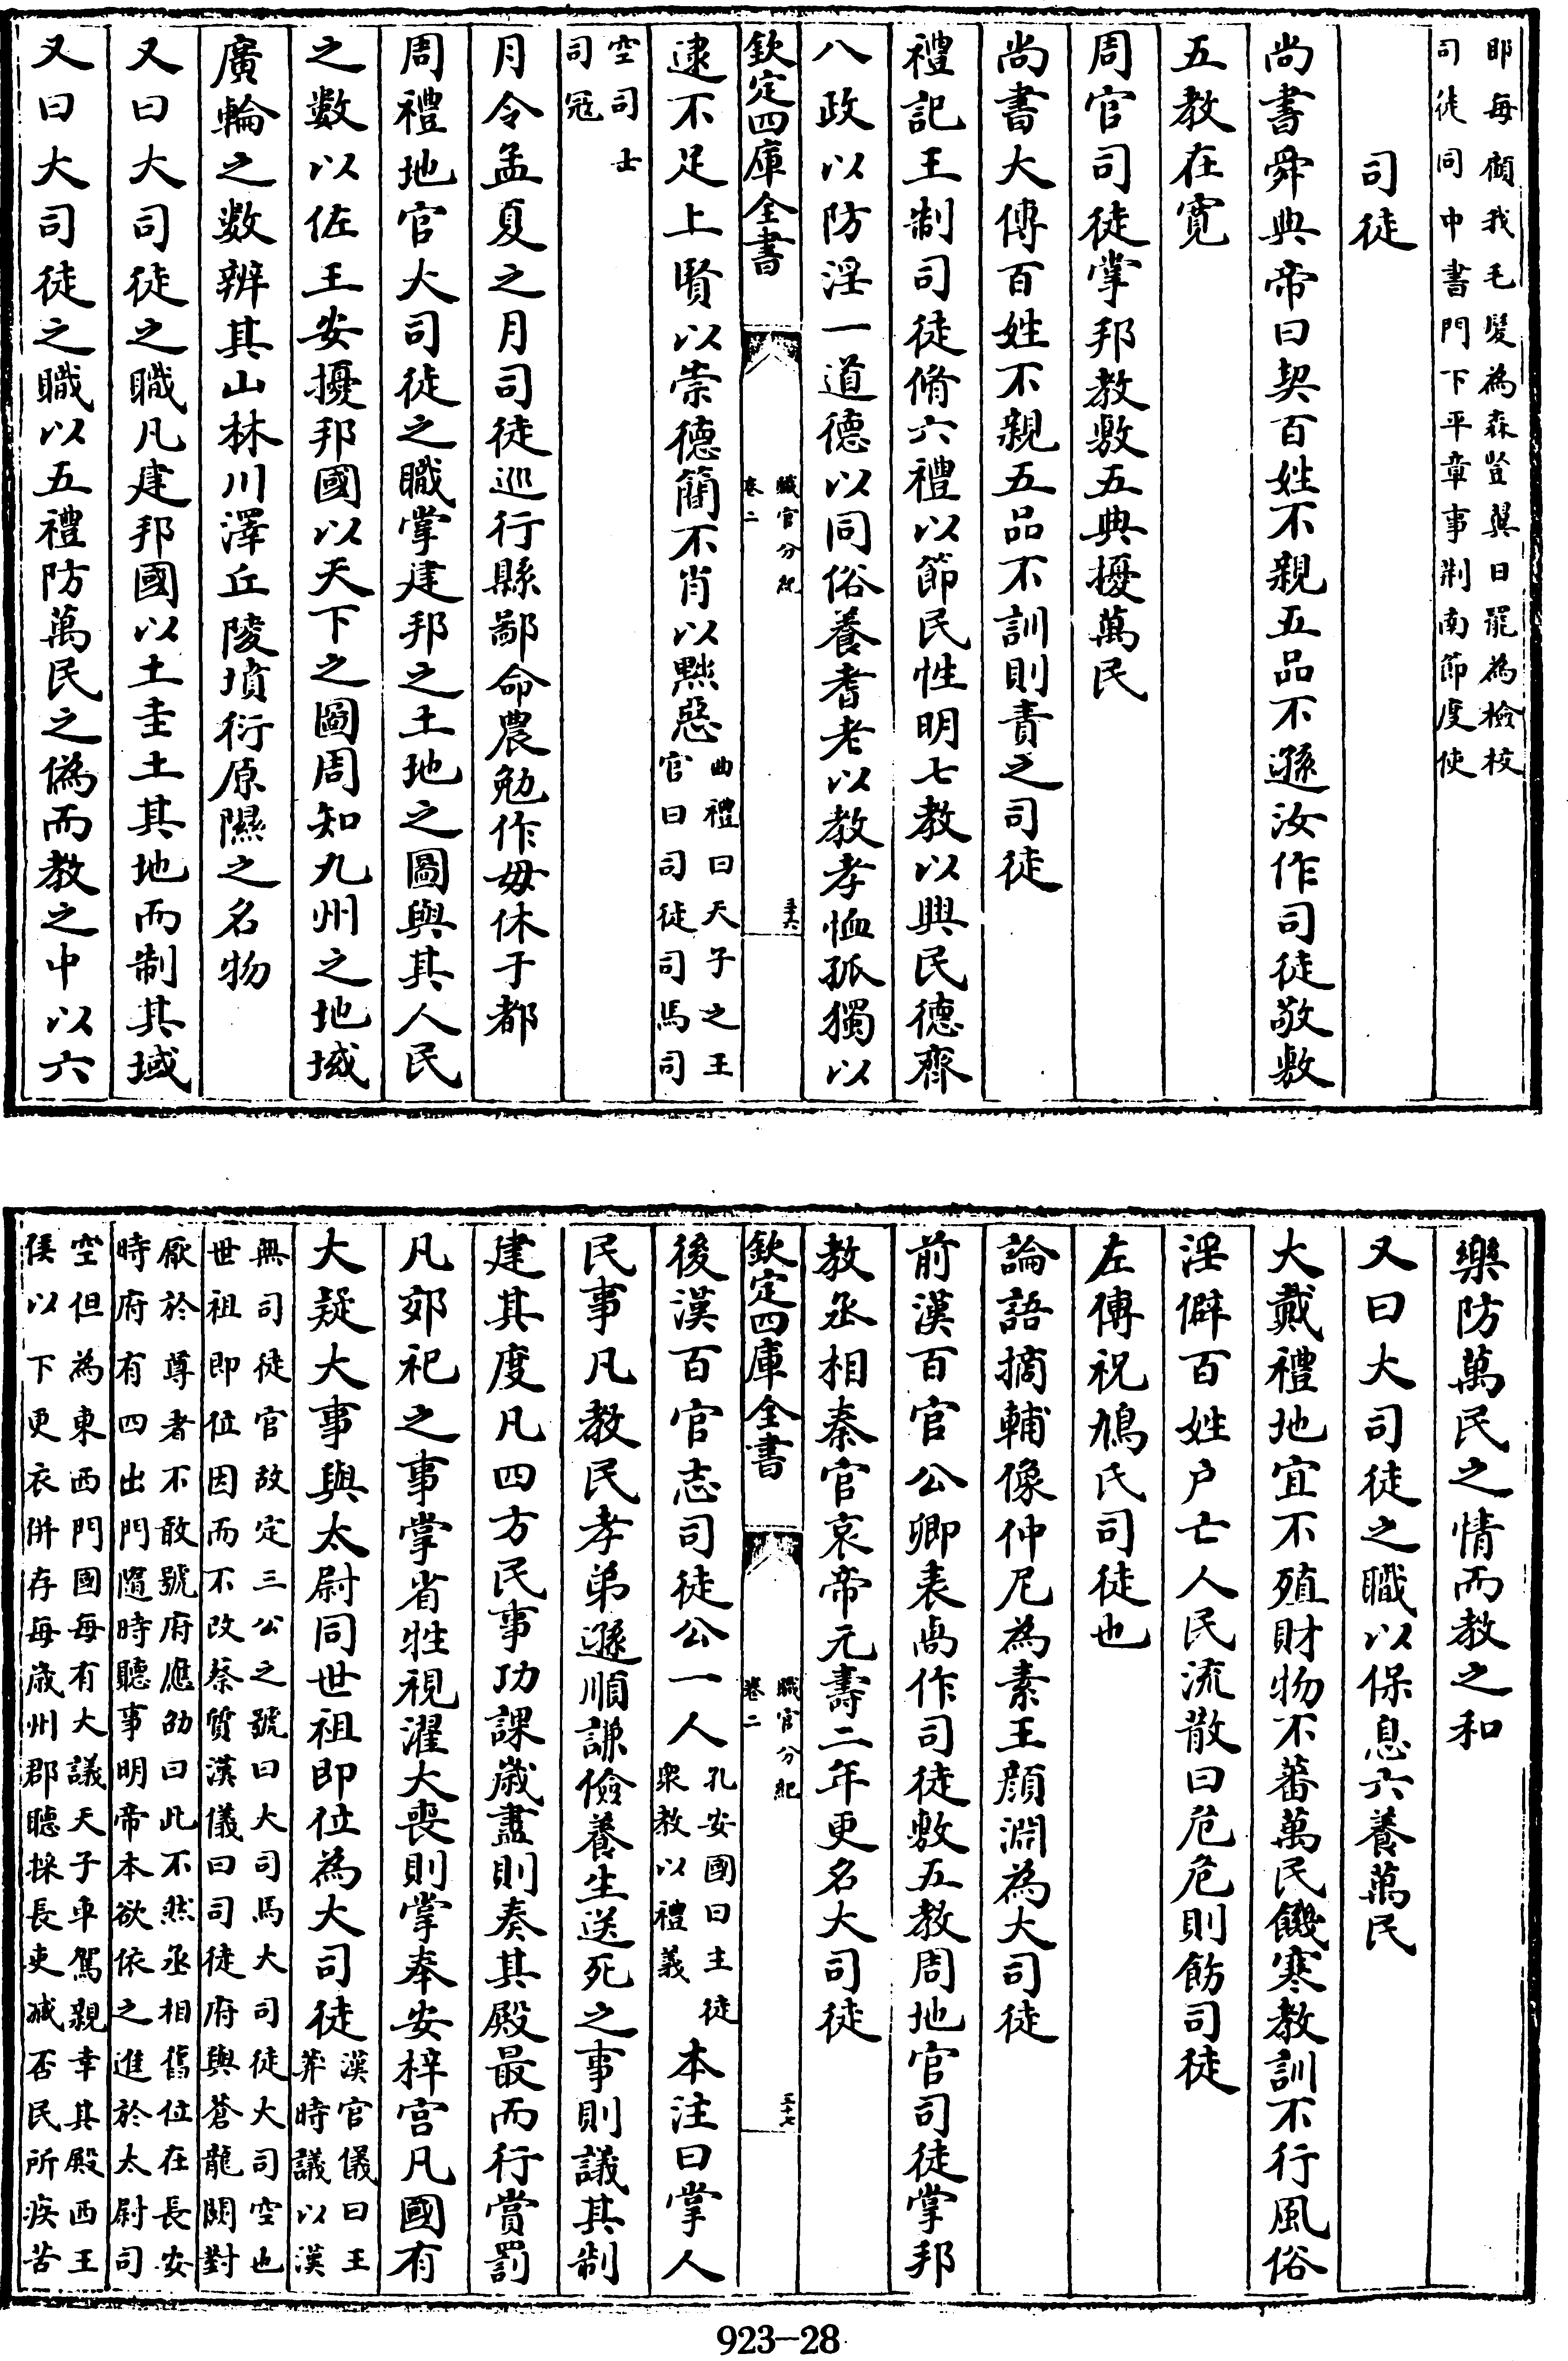 耶每顧我毛髮為森豎翼日罷為檢校
司徒同中書門下平章事荆南節度使
司徒
尚書舜典帝曰契百姓不親五品不遜汝作司徒敬敷
五教在寛
周官司徒掌邦教敷五典擾萬民
尚書大傅百姓不親五品不訓則責之司徒
禮記王制司徒脩六禮以節民性明七教以興民德齊
八政以防淫一道德以同俗養耆老以教孝恤孤獨以
欽定四庫全書
職官分紀
卷二
三十六
逮不足上賢以崇德簡不肖以黜惡
曲禮曰天子之王
官曰司徒司馬司
空司士
司冦
月令孟夏之月司徒巡行縣鄙命農勉作毋休于都
周禮地官大司徒之職掌建邦之土地之圖與其人民
之數以佐王安擾邦國以天下之圖周知九州之地域
廣輪之數辨其山林川澤丘陵墳衍原隰之名物
又曰大司徒之職凡建邦國以土圭土其地而制其域
又曰大司徒之職以五禮防萬民之偽而教之中以六
樂防萬民之情而教之和
又曰大司徒之職以保息六養萬民
大戴禮地宜不殖財物不蕃萬民饑寒教訓不行風俗
淫僻百姓户亡人民流散曰危危則飭司徒
左傅祝鳩氏司徒也
論語摘輔像仲尼為素王顔淵為大司徒
前漢百官公卿表卨作司徒敷五教周地官司徒掌邦
教丞相秦官哀帝元壽二年更名大司徒
欽定四庫全書
職官分紀
卷二
三十七
後漢百官志司徒公一人
孔安國曰主徒
衆教以禮義
本注曰掌人
民事凡教民孝弟遜順謙儉養生送死之事則議其制
建其度凡四方民事功課歲盡則奏其殿最而行賞罰
凡郊祀之事掌省牲視濯大喪則掌奉安梓宫凡國有
大疑大事與太尉同世祖即位為大司徒
漢官儀曰王
莽時議以漢
無司徒官故定三公之號曰大司馬大司徒大司空也
世祖即位因而不改蔡質漢儀曰司徒府與蒼龍闕對
厭於尊者不敢號府應劭曰此不然丞相舊位在長安
時府有四出門隨時聽事明帝本欲依之進於太尉司
空但為東西門國每有大議天子車駕親幸其殿西王
侯以下更衣併存每歲州郡聽採長吏臧否民所疾苦
923-28